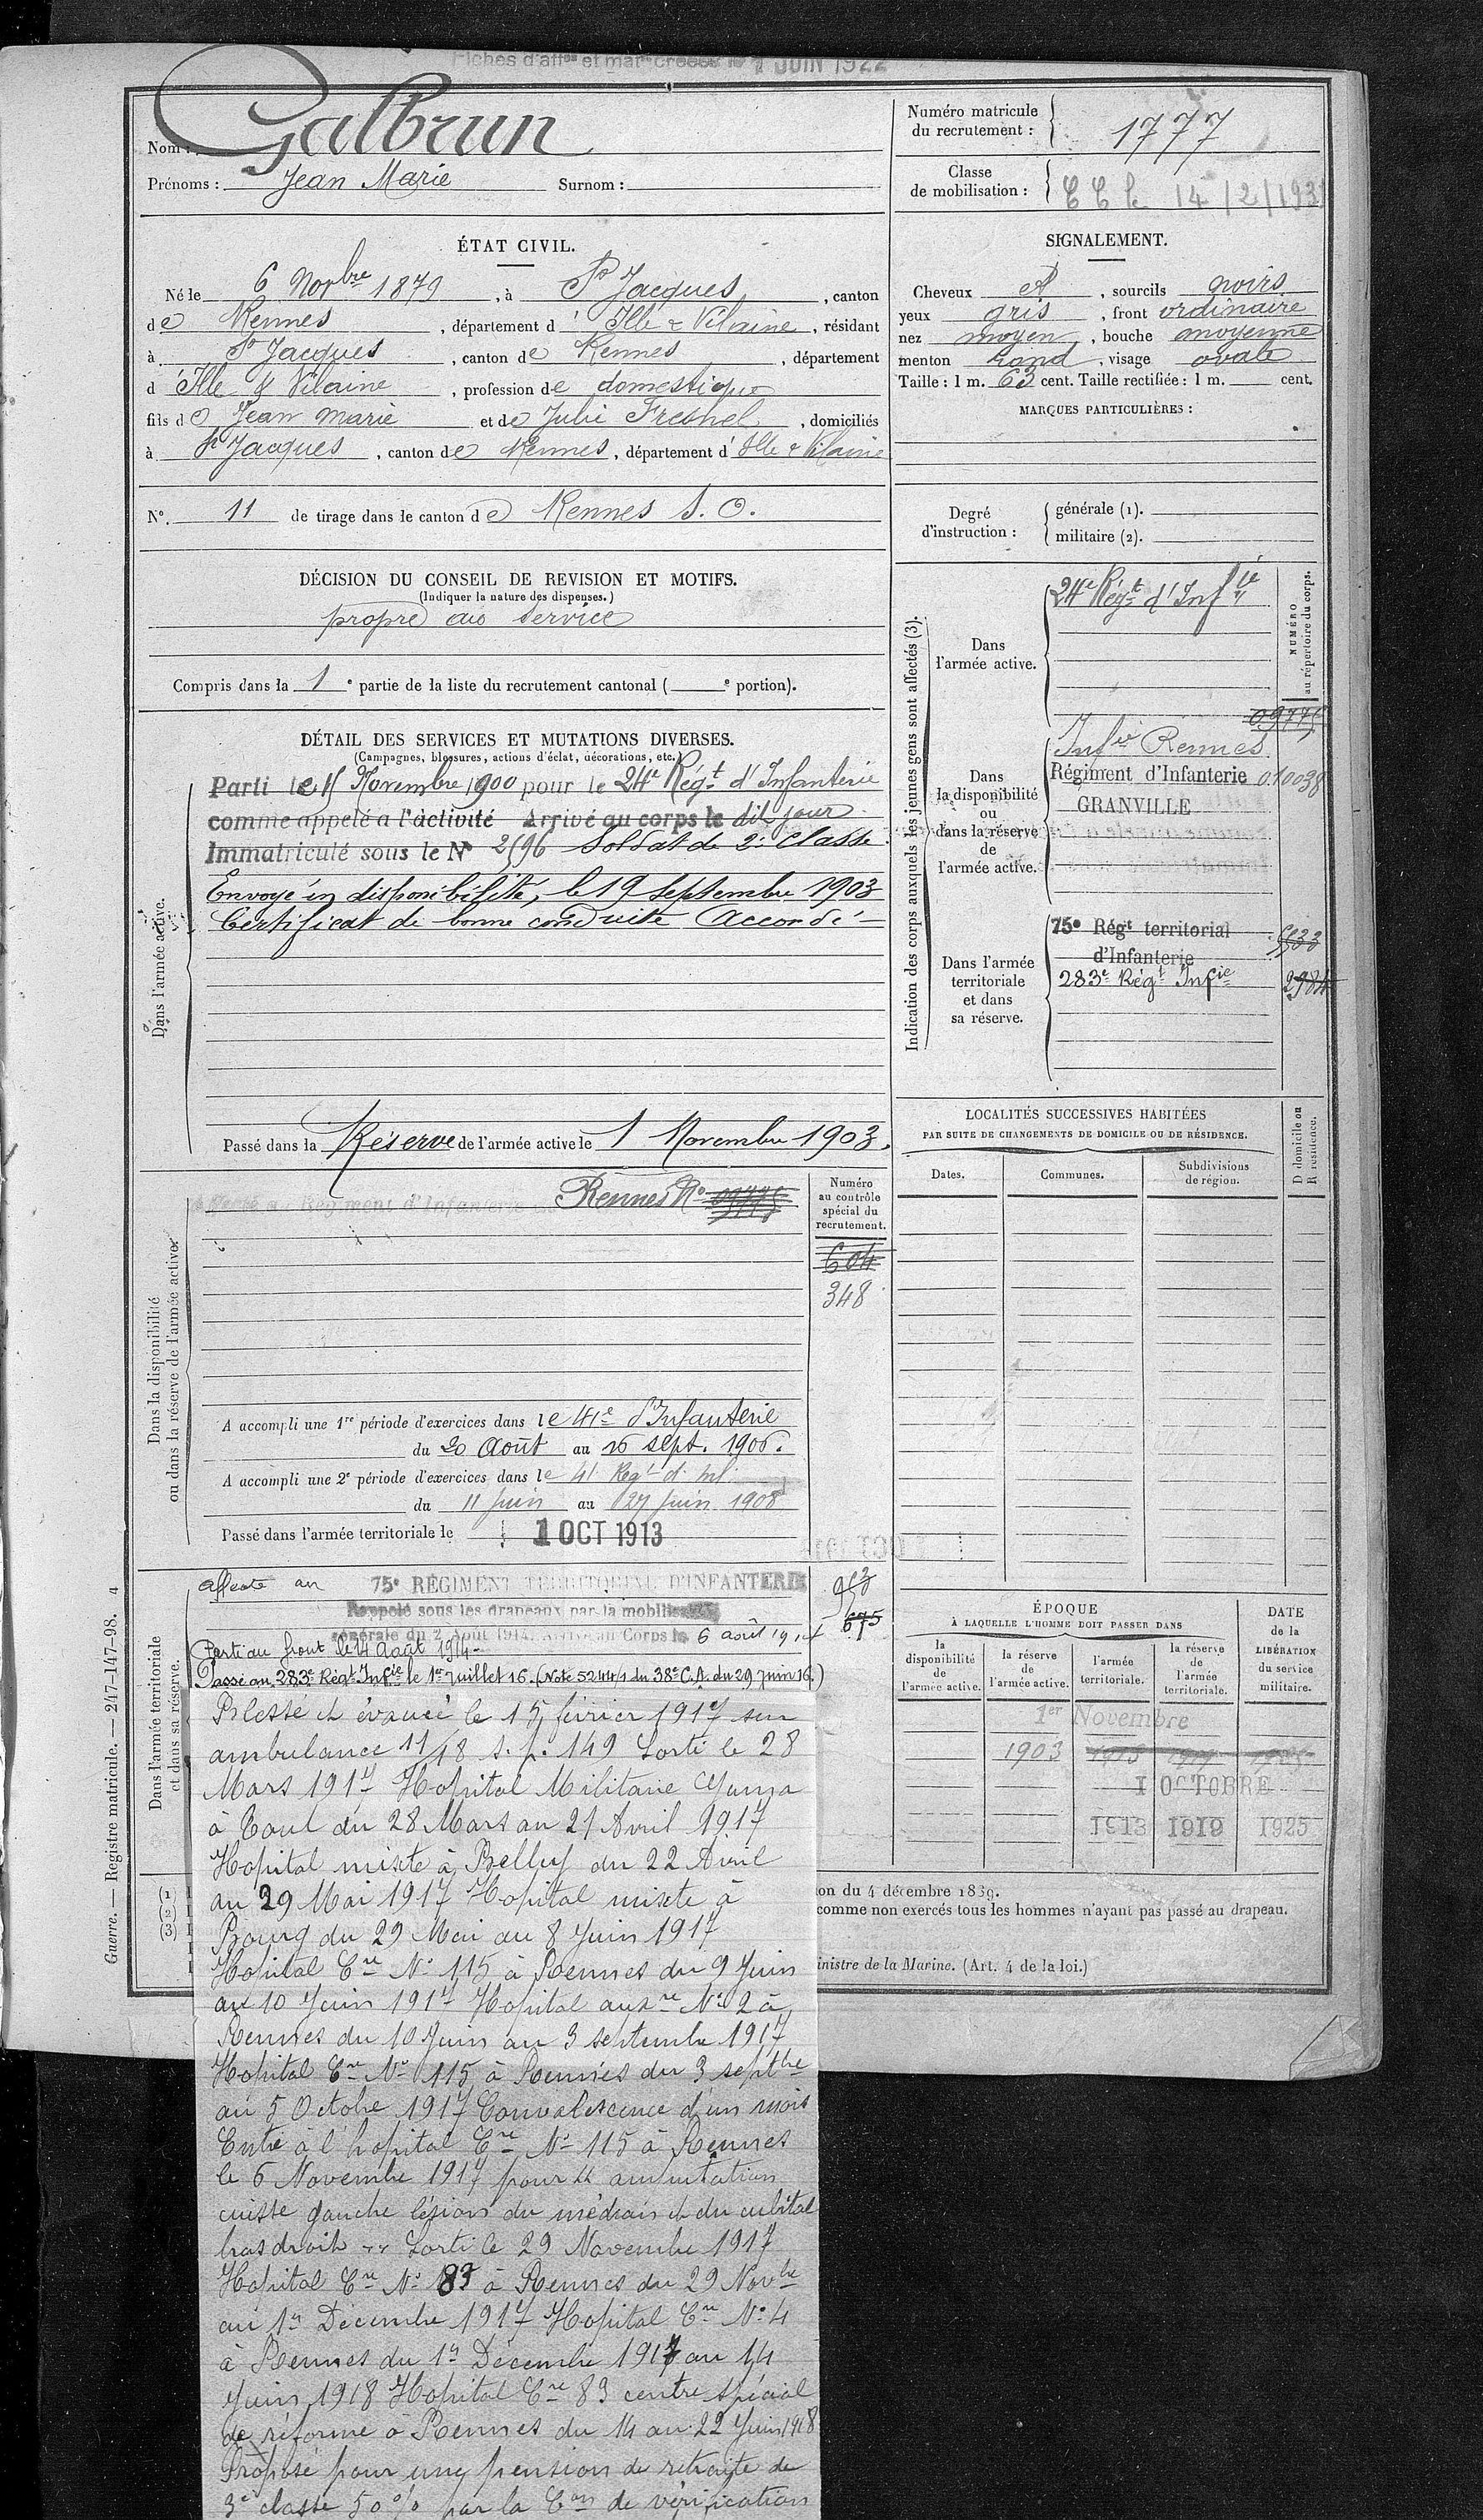 Fiches d'aff<sup>on</sup> et mar<sup>on</sup> créées le 1 JUIN 1922
Nom : Galbrun
Prénoms : Jean Marie Surnom :
Numéro matricule du recrutement : 1777
Classe de mobilisation :
14/2/193
ÉTAT CIVIL.
Né le 6 Novbre 1879, à St Jacques, canton
de Rennes, département d'Ille & Vilaine, résidant
à St Jacques, canton de Rennes, département
d'Ille & Vilaine, profession de domestique
fils de Jean Marie et de Julie Fresnel, domiciliés
à St Jacques, canton de Rennes, département d'Ille & Vilaine
N°. 11 de tirage dans le canton de Rennes S. O.
SIGNALEMENT.
Cheveux et, sourcils noirs
yeux gris, front ordinaire
nez moyen, bouche moyenne
menton rond, visage ovale
Taille : 1 m. 63 cent. Taille rectifiée : 1 m. cent.
MARQUES PARTICULIÈRES :
Degré d'instruction :
générale (1).
militaire (2).
DÉCISION DU CONSEIL DE REVISION ET MOTIFS.
(Indiquer la nature des dispenses.)
propre au service
Compris dans la 1e partie de la liste du recrutement cantonal ( e portion).
DÉTAIL DES SERVICES ET MUTATIONS DIVERSES.
(Campagnes, blessures, actions d'éclat, décorations, etc.)
Dans l'armée active.
Parti le 15 Novembre 1900 pour le 24e Régt d'Infanterie
comme appelé à l'activité Arrivé au corps le dit jour
Immatriculé sous le N° 2596 Soldat de 2e Classe.
Envoyé en disponibilité, le 19 Septembre 1903
Certificat de bonne conduite Accordé
Passé dans la Réserve de l'armée active le 1 Novembre 1903.
Indication des corps auxquels les jeunes gens sont affectés (3).
NUMÉRO au répertoire du corps.
Dans l'armée active.
24e Régt d'Infie
09775
Dans la disponibilité ou dans la réserve de l'armée active.
Infie Rennes
Régiment d'Infanterie 010038
GRANVILLE
Dans l'armée territoriale et dans sa réserve.
75e Régt territorial
d'Infanterie
283e Régt Infie 2984
Dans la disponibilité ou dans la réserve de l'armée active.
Régiment d'Infanterie Rennes No 09775
Numéro au contrôle spécial du recrutement.
604
348
A accompli une 1re période d'exercices dans le 41e d'Infanterie
du 20 Août au 16 sept. 1906.
A accompli une 2e période d'exercices dans le 41 Régt d'Inf.
du 11 juin au 27 juin 1908
Passé dans l'armée territoriale le 1 OCT 1913
LOCALITÉS SUCCESSIVES HABITÉES
PAR SUITE DE CHANGEMENTS DE DOMICILE OU DE RÉSIDENCE.
Dates. Communes. Subdivisions de région. D domicile ou R résidence.
Dans l'armée territoriale et dans sa réserve.
Affecté au 75e RÉGIMENT TERRITORIAL D'INFANTERIE
Rappelé sous les drapeaux par la mobilisation
générale du 2 Août 1914. Arrivé au Corps le 6 août 1914
675
Parti au front le 4 Août 1914
Passé au 283e Régt Infie le 1er Juillet 16. (Note 5244/1 du 38e C.A. du 29 juin 16.)
Blessé et évacué le 15 février 1917 sur
ambulance 11/18 s.p. 149 Sorti le 28
Mars 1917 Hopital Militaire Gama
à Toul du 28 Mars au 21 Avril 1917
Hopital mixte à Belley du 22 Avril
au 29 Mai 1917 Hopital mixte à
Bourg du 29 Mai au 8 Juin 1917
Hopital Cre No 115 à Rennes du 9 Juin
au 10 Juin 1917 Hopital auxre No 2 à
Rennes du 10 Juin au 3 septembre 1917
Hopital Cre No 115 à Rennes du 3 septbre
au 5 Octobre 1917 Convalescence d'un mois
Entré à l'hopital Cre No 115 à Rennes
le 6 Novembre 1917 pour amputation
cuisse gauche lésions du médian et du cubital
bras droit Sorti le 29 Novembre 1917
Hopital Cre No 83 à Rennes du 29 Novbre
au 1er Décembre 1917 Hopital Cre No 4
à Rennes du 1er Décembre 1917 au 14
Juin 1918 Hopital Cre 83 centre spécial
de réforme à Rennes du 14 au 22 Juin 1918
Proposé pour une pension de retraite de
3e classe 50% par la Con de vérification
ÉPOQUE
À LAQUELLE L'HOMME DOIT PASSER DANS
la disponibilité de l'armée active. la réserve de l'armée active. l'armée territoriale. la réserve de l'armée territoriale.
DATE de la LIBÉRATION du service militaire.
1er Novembre
1903
1 OCTOBRE
1913 1919 1925
(1)
(2)
(3)
on du 4 décembre 1889.
comme non exercés tous les hommes n'ayant pas passé au drapeau.
inistre de la Marine. (Art. 4 de la loi.)
Guerre. — Registre matricule. — 247-147-98. 4